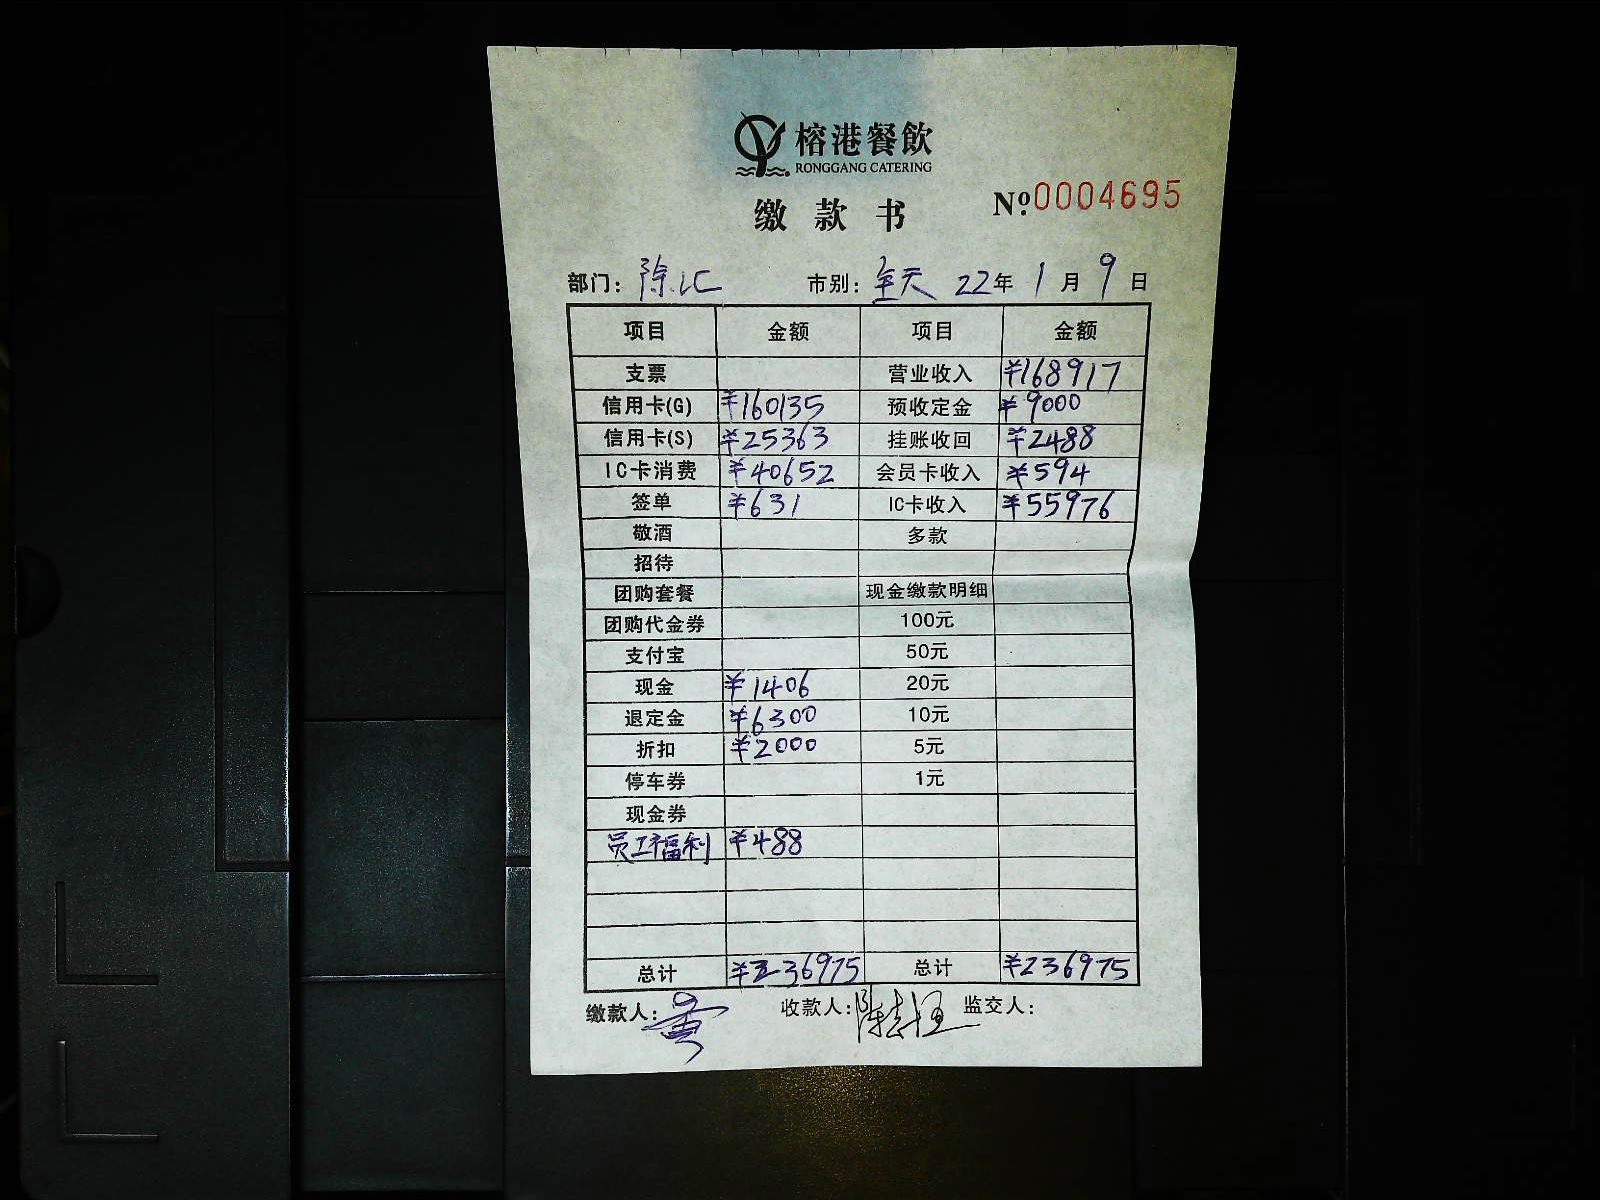 榕港餐飲
RONGGANG CATERING
缴款书 Nº:0004695
部门: 市别: 全天 22年 1月 9日
项目 金额 项目 金额
支票 营业收入 ¥168917
信用卡(G) ¥160135 预收定金 ¥9000
信用卡(S) ¥25363 挂账收回 ¥2488
IC卡消费 ¥40652 会员卡收入 ¥594
签单 ¥631 IC卡收入 ¥55976
敬酒 多款
招待
团购套餐 现金缴款明细
团购代金券 100元
支付宝 50元
现金 ¥1406 20元
退定金 ¥6300 10元
折扣 ¥2000 5元
停车券 1元
现金券
员工福利 ¥488
总计 ¥236975 总计 ¥236975
缴款人: 收款人: 监交人: